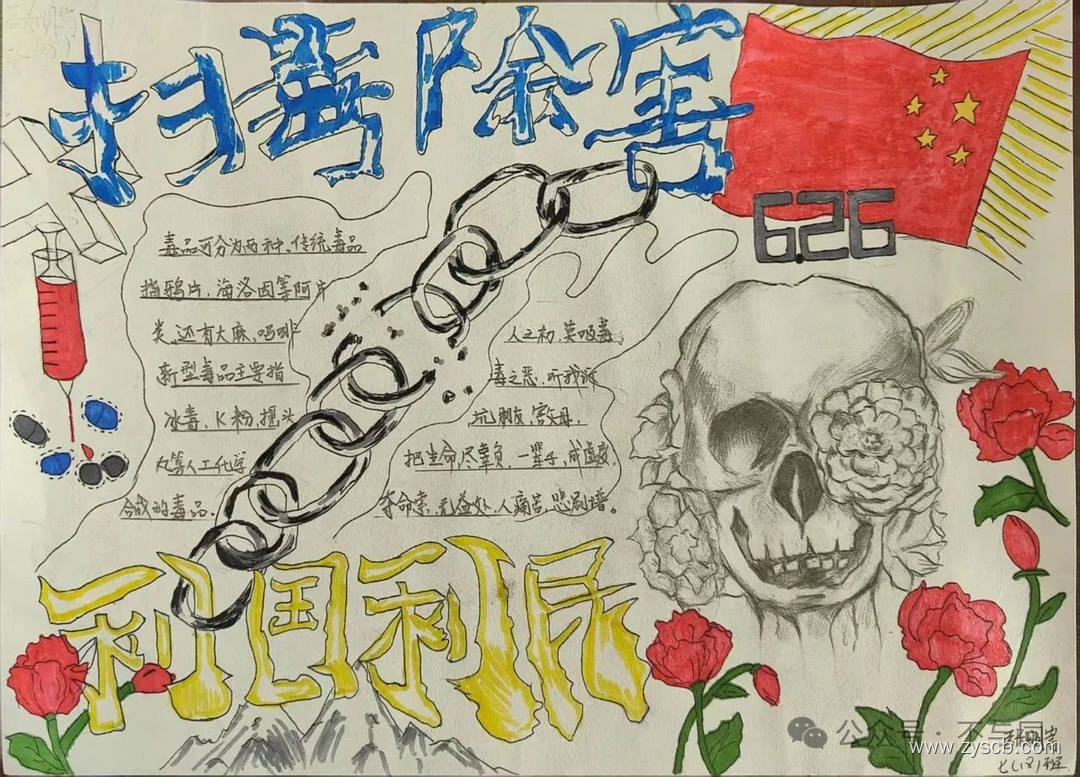 扫毒除害
6.26
毒品可分为两种、传统毒品
指鸦片，海洛因等阿片
类，还有大麻，吗啡
新型毒品主要指
冰毒，K粉，摇头
丸等人工化学
合成的毒品。
人之初，莫吸毒，
毒之恶，听我诉
坑朋友，害父母，
把生命，尽辜负，一辈子，成虚度
夺命索，无益处，人痛苦，悲剧谱。
利国利民
公众号·不与同
www.zyscb.com
七(8)班